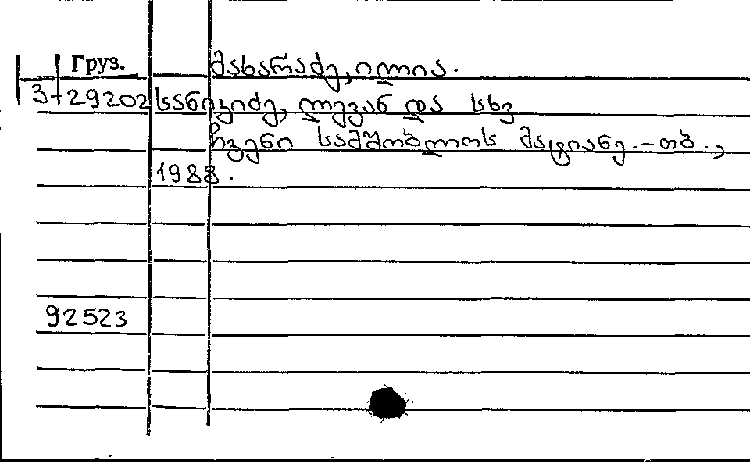 Груз. მახარაძე, ილია.
3-29202 სანიკიძე, ლევან და სხვ
ჩვენი სამშობლოს მატიანე.-თბ.,
1988.
92523